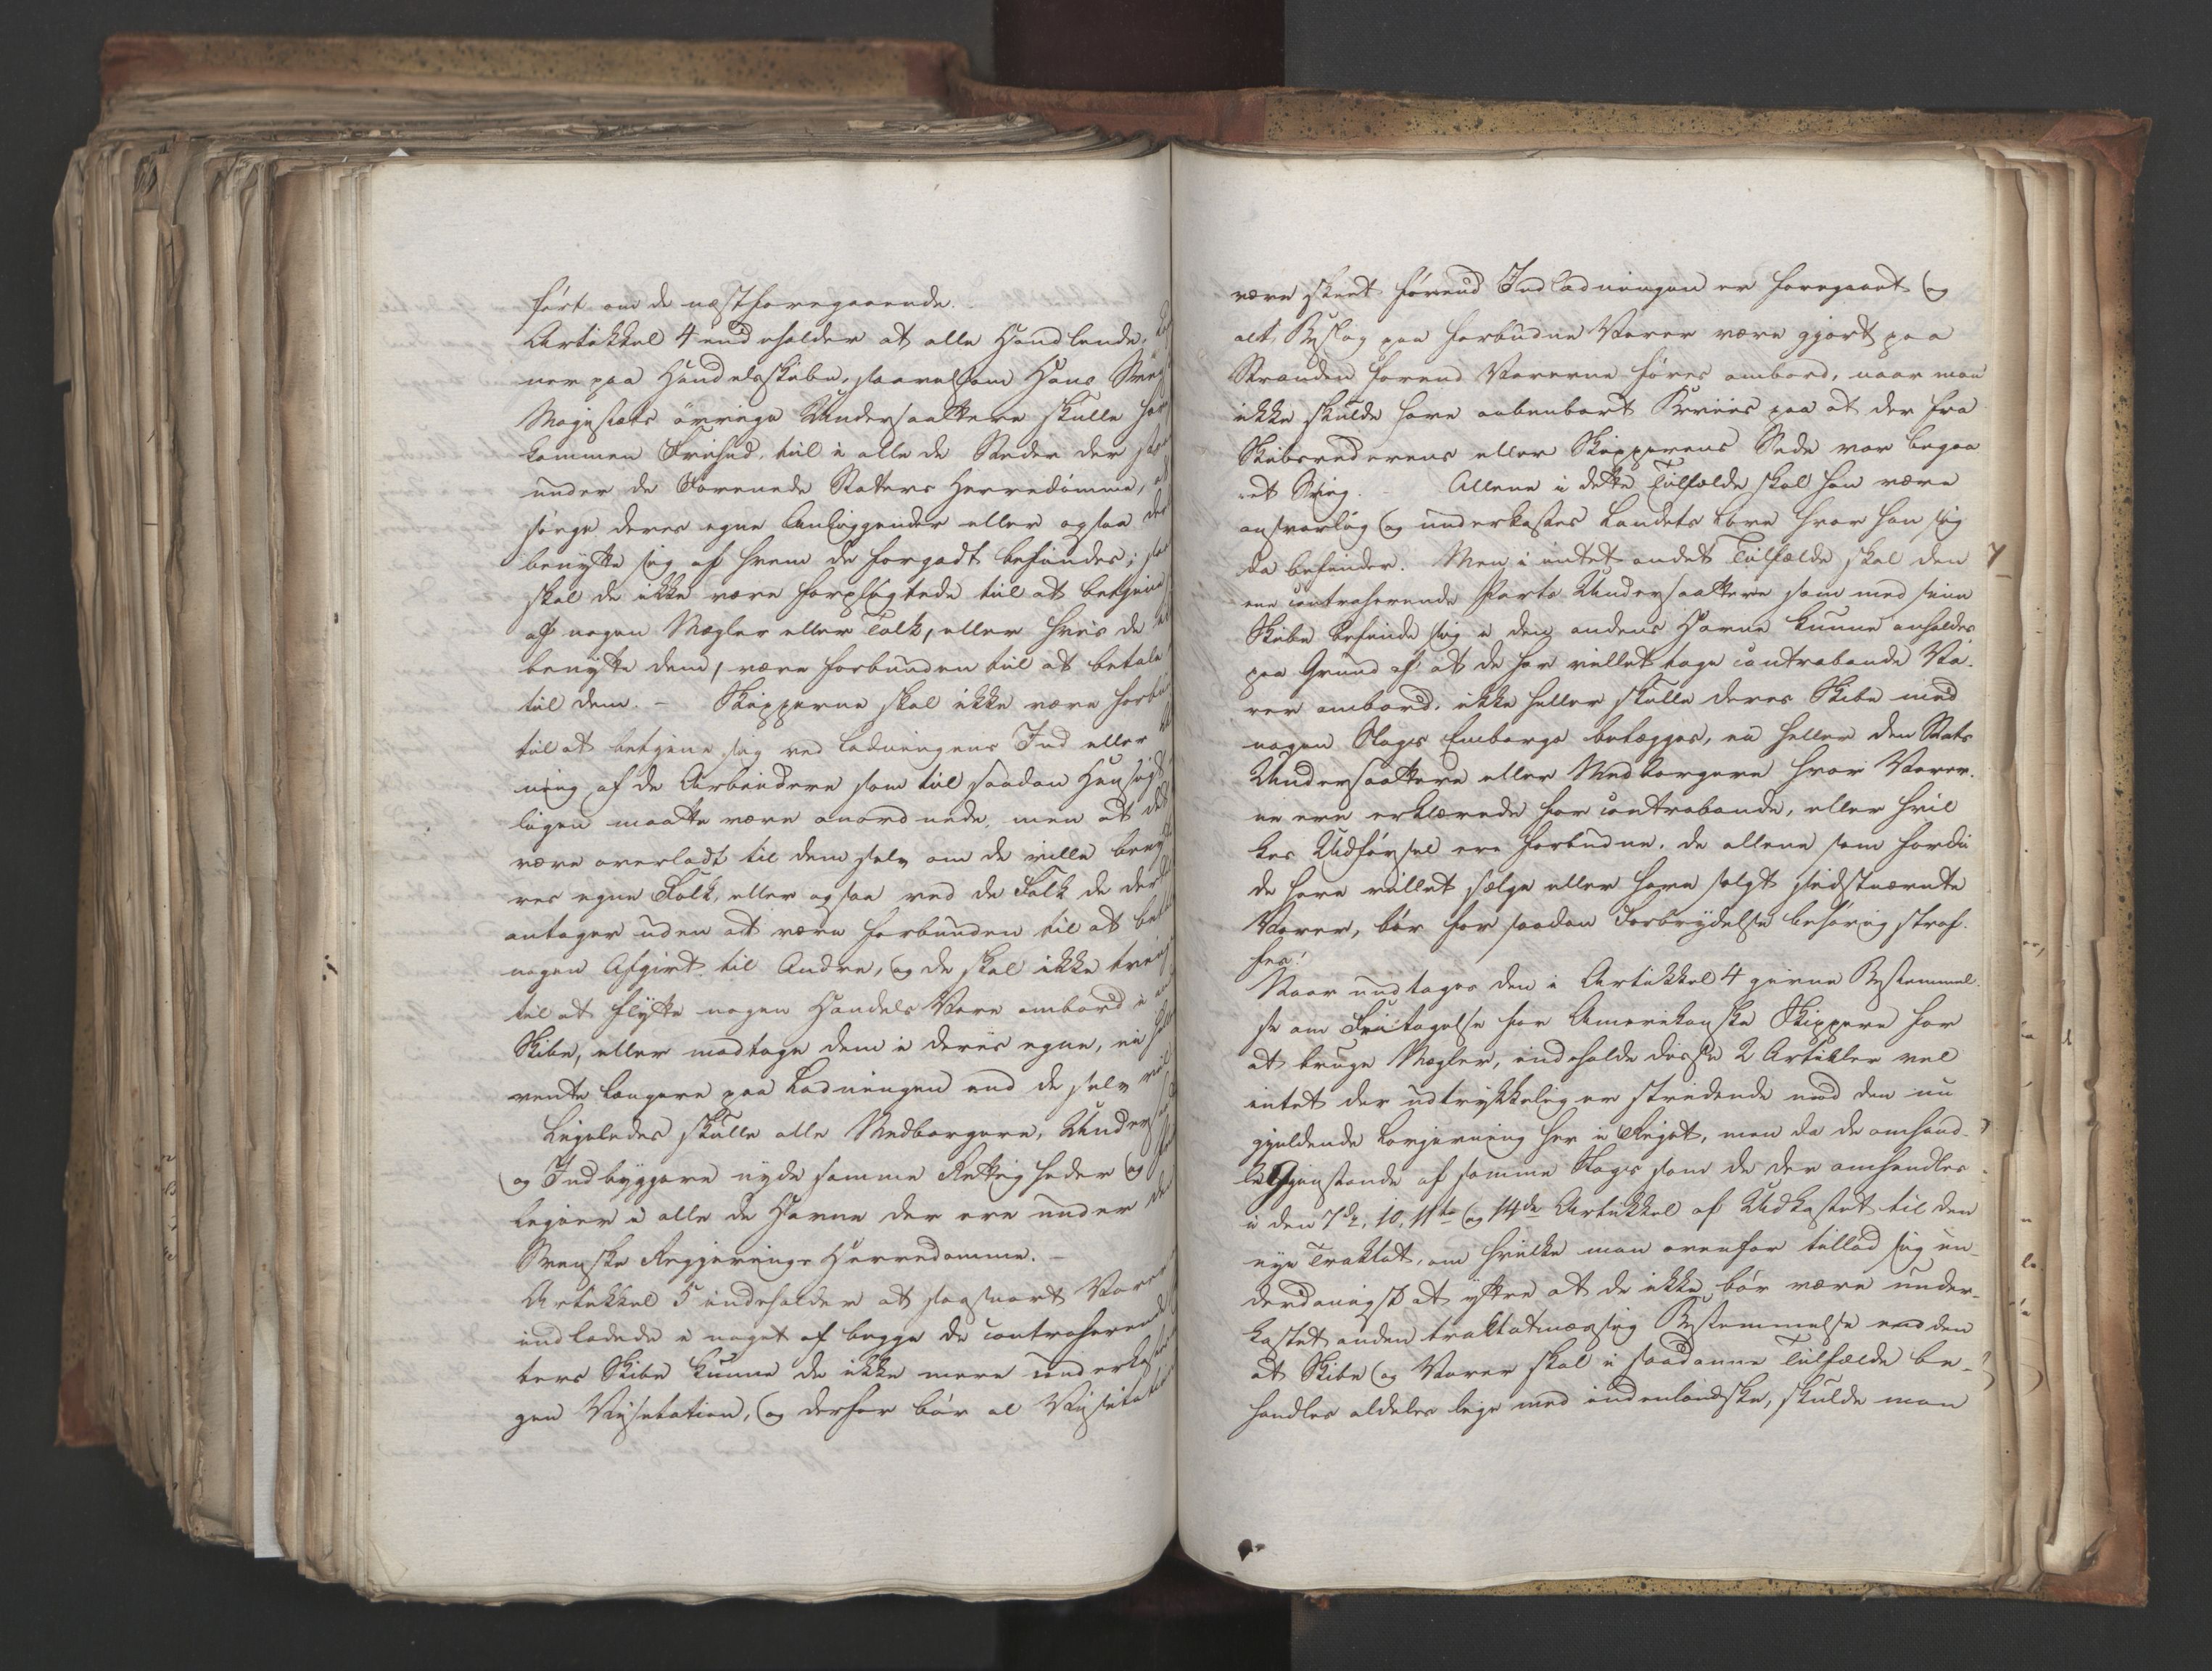 ført om de næstforegaaende.
Artikkel 4 indeholder at alle Handlende,
ner paa Handelsskibe, saavelsom Hans
Majestæts øvrige Undersaattere skulle
kommen Frihed til i alle de Stæder der
under de Forenede Staters Herredømme,
sørge deres egne Anliggender eller ogsaa
benytte sig af hvem de forgodt befindes;
skal de ikke være forpligtede til at betjene
af nogen Mægler eller Tolk, eller hvis de
benytte dem, være forbunden til at betale
til dem. – Skipperne skal ikke være
til at betjene sig ved Ladningens Ind eller
ning af de Arbeidere som til saadan Hensigt
ligen maatte være anordnede, men at det
være overladt til dem selv om de ville
res egne Folk, eller ogsaa ved de Folk de
antager uden at være forbunden til at
nogen Afgivt til Andre, og de skal ikke
til at flytte nogen Handels Vare ombord i
Skibe, eller modtage dem i deres egne, ei
vente længere paa Ladningen end de selv
Ligeledes skulle alle Medborgere,
og Indbyggere nyde samme Rettigheder og
legier i alle de Havne der ere under
Svenske Regjerings Herredømme. –
Artikkel 5 indeholder at saasnart
indladede i noget af begge de contraherende
ters Skibe kunne de ikke mere
gen Visitation, og derfor bør al
være skeet førend Indladningen er foregaaet og
alt Beslag paa forbudne Varer være gjort paa
Stranden førend Varerne føres ombord, naar man
ikke skulde have aabenbart Beviis paa at der fra
Skibsrederens eller Skipperens Side var begaa
et Svig. – Allene i dette Tilfælde skal han være
ansvarlig og underkastes Landets Love hvor han sig
da befinder. Men i intet andet Tilfælde skal den
ene contraherende Parts Undersaattere som med sine
Skibe befinde sig i den andens Havne kunne anholdes
paa Grund af at de har villet tage contrabande Va-
rer ombord, ikke heller skulle deres Skibe med
nogen Slags Embargo belægges, ei heller den Stats
Undersaattere eller Medborgere hvor Varer-
ne ere erklærede for contrabande, eller hvil
kes Udførsel ere forbudne, de allene som fordi
de have villet sælge eller have solgt sidstnævnte
Varer, bør for saadan Forbrydelse behørig straf-
fes!
Naar undtages den i Artikkel 4 givne Bestemmel-
se om Fritagelse for Amerikanske Skippere for
at bruge Mægler, indeholde disse 2 Artikler vel
intet der udtrykkelig er stridende mod den nu
gjældende Lovgivning her i Riget, men da de omhand-
le Gjenstande af samme Slags som de der omhandles
i den 7de, 10, 11te og 14de Artikkel af Udkastet til den
nye Traktat, om hvilke man ovenfor tillod sig un-
derdanigst at yttre at de ikke bør være under-
kastet anden traktatmæssig Bestemmelse end den
at Skibe og Varer skal i saadanne Tilfælde be-
handles aldeles lige med indenlandske, skulde man